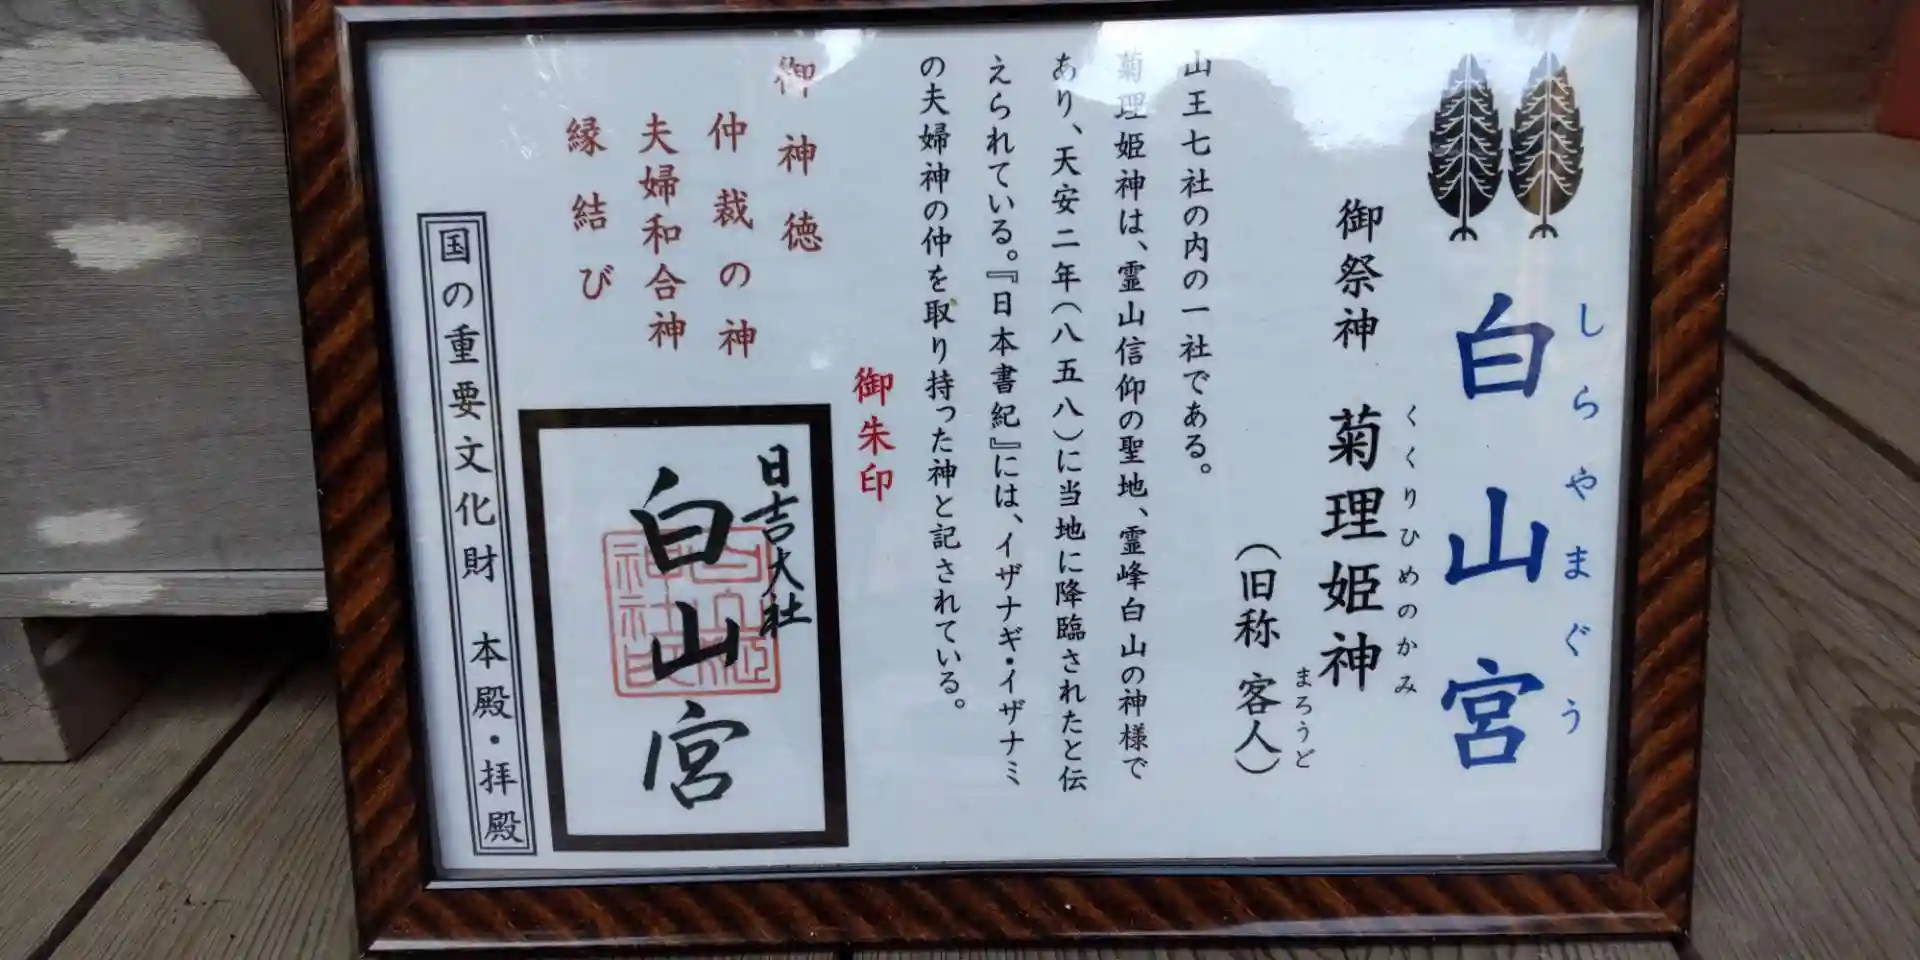 しらやまぐう
白山宮
くくりひめのかみ
御祭神 菊理姫神
まろうど
（旧称 客人）
山王七社の内の一社である。
菊理姫神は、霊山信仰の聖地、霊峰白山の神様で
あり、天安二年（八五八）に当地に降臨されたと伝
えられている。『日本書紀』には、イザナギ・イザナミ
の夫婦神の仲を取り持った神と記されている。
御朱印
御神徳
仲裁の神
夫婦和合神
縁結び
日吉大社
白山宮
国の重要文化財 本殿・拝殿